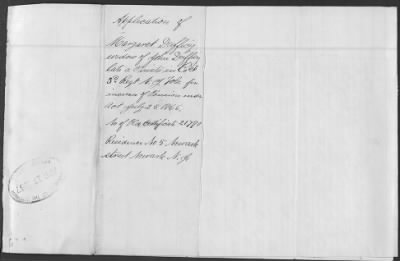 Application of
Margaret Duffey
widow of John Duffey
late a Private in Co
3d Regt N. J. Vols for
increase of Pension under
act July 25 1866.
No of Certificate
Residence No 8 Newark
street Newark N. J.